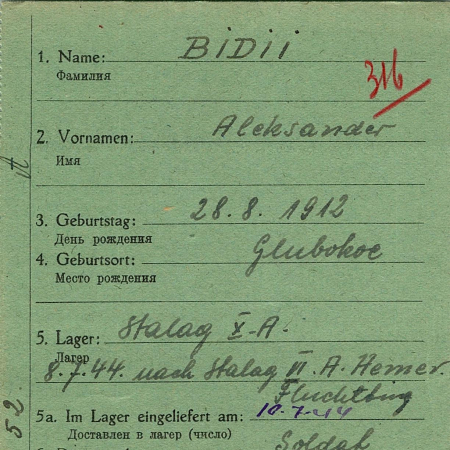 1. Name: BIDII
Фамилия
316
2. Vornamen: Aleksander
Имя
3. Geburtstag: 28.8.1912
День рождения
4. Geburtsort: Glubokoe
Место рождения
5. Lager: Stalag X-A.
Лагер
8.7.44. nach Stalag VI.A. Hemer.
5a. Im Lager eingeliefert am: 10.7.44
Доставлен в лагер (число)
Soldat
52